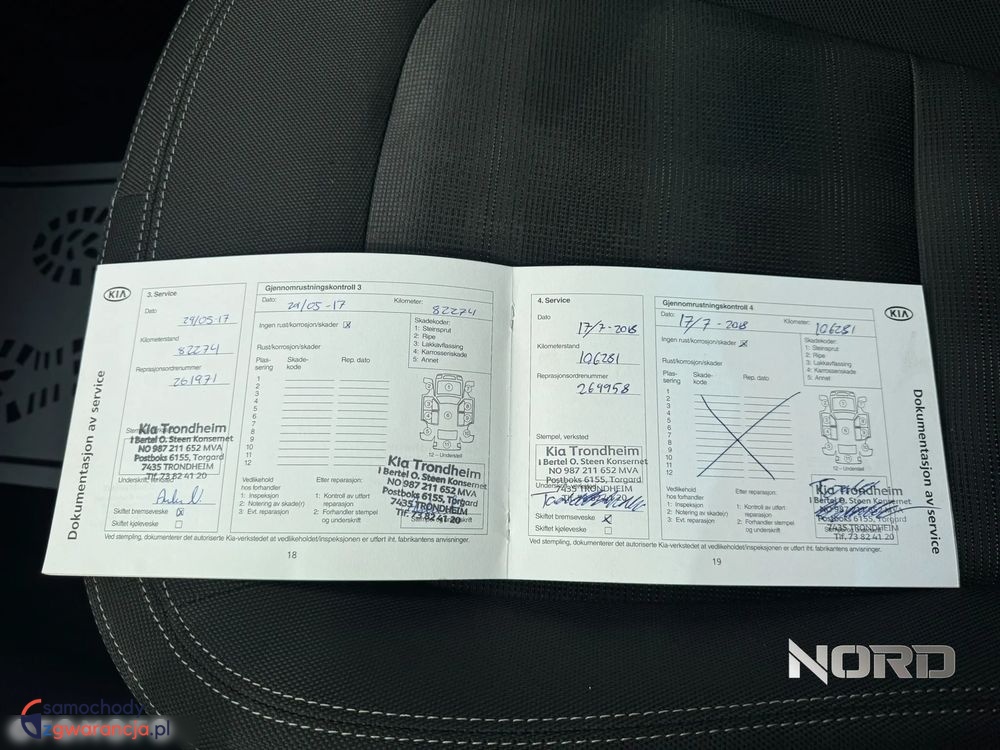 KIA
Dokumentasjon av service
3. Service
Dato
29/05-17
Kilometerstand
82274
Reprasjonsordrenummer
261971
Stempel, verksted
Kia Trondheim
I Bertel O. Steen Konsernet
NO 987 211 652 MVA
Postboks 6155, Torgard
7435 TRONDHEIM
Tlf. 73 82 41 20
Underskrift
Skiftet bremsevæske
Skiftet kjøleveske
Gjennomrustningskontroll 3
Dato: 29/05-17 Kilometer: 82274
Ingen rust/korrosjon/skader
Rust/korrosjon/skader
Skadekoder:
1: Steinsprut
2: Ripe
3: Lakkavflassing
4: Karrosseriskade
5: Annet
Plas-sering Skade-kode Rep. dato
1
2
3
4
5
6
7
8
9
10
11
12
12 – Understell
Vedlikehold
hos forhandler
1: Inspeksjon
2: Notering av skade(r)
3: Evt. reparasjon
Etter reparasjon:
1: Kontroll av utført
reparasjon
2: Forhandler stempel
og underskrift
Kia Trondheim
I Bertel O. Steen Konsernet
NO 987 211 652 MVA
Postboks 6155, Torgard
7435 TRONDHEIM
Tlf. 73 82 41 20
Ved stempling, dokumenterer det autoriserte Kia-verkstedet at vedlikeholdet/inspeksjonen er utført iht. fabrikantens anvisninger.
18
4. Service
Dato
17/7-2018
Kilometerstand
106281
Reprasjonsordrenummer
269958
Stempel, verksted
Kia Trondheim
I Bertel O. Steen Konsernet
NO 987 211 652 MVA
Postboks 6155, Torgard
7435 TRONDHEIM
Skiftet bremsevæske
Skiftet kjøleveske
Gjennomrustningskontroll 4
Dato: 17/7-2018 Kilometer: 106281
Ingen rust/korrosjon/skader
Rust/korrosjon/skader
Skadekoder:
1: Steinsprut
2: Ripe
3: Lakkavflassing
4: Karrosseriskade
5: Annet
Plas-sering Skade-kode Rep. dato
1
2
3
4
5
6
7
8
9
10
11
12
12 – Understell
Vedlikehold
hos forhandler
1: Inspeksjon
2: Notering av skade(r)
3: Evt. reparasjon
Etter reparasjon:
1: Kontroll av utført
reparasjon
2: Forhandler stempel
og underskrift
Kia Trondheim
I Bertel O. Steen Konsernet
NO 987 211 652 MVA
Postboks 6155, Torgard
7435 TRONDHEIM
Tlf. 73 82 41 20
Ved stempling, dokumenterer det autoriserte Kia-verkstedet at vedlikeholdet/inspeksjonen er utført iht. fabrikantens anvisninger.
19
KIA
Dokumentasjon av service
NORD
samochody
zgwarancja.pl